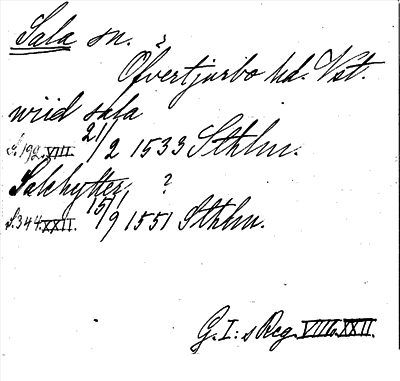 Sala sn.
Öfvertjurbo hd. Vst.
wiid sala
S. 192. VIII. 21/2 1533 Sthlm.
Salehytter ?
S. 344. XXII. 15/9 1551 Sthlm.
G. I:s Reg. VIII o. XXII.